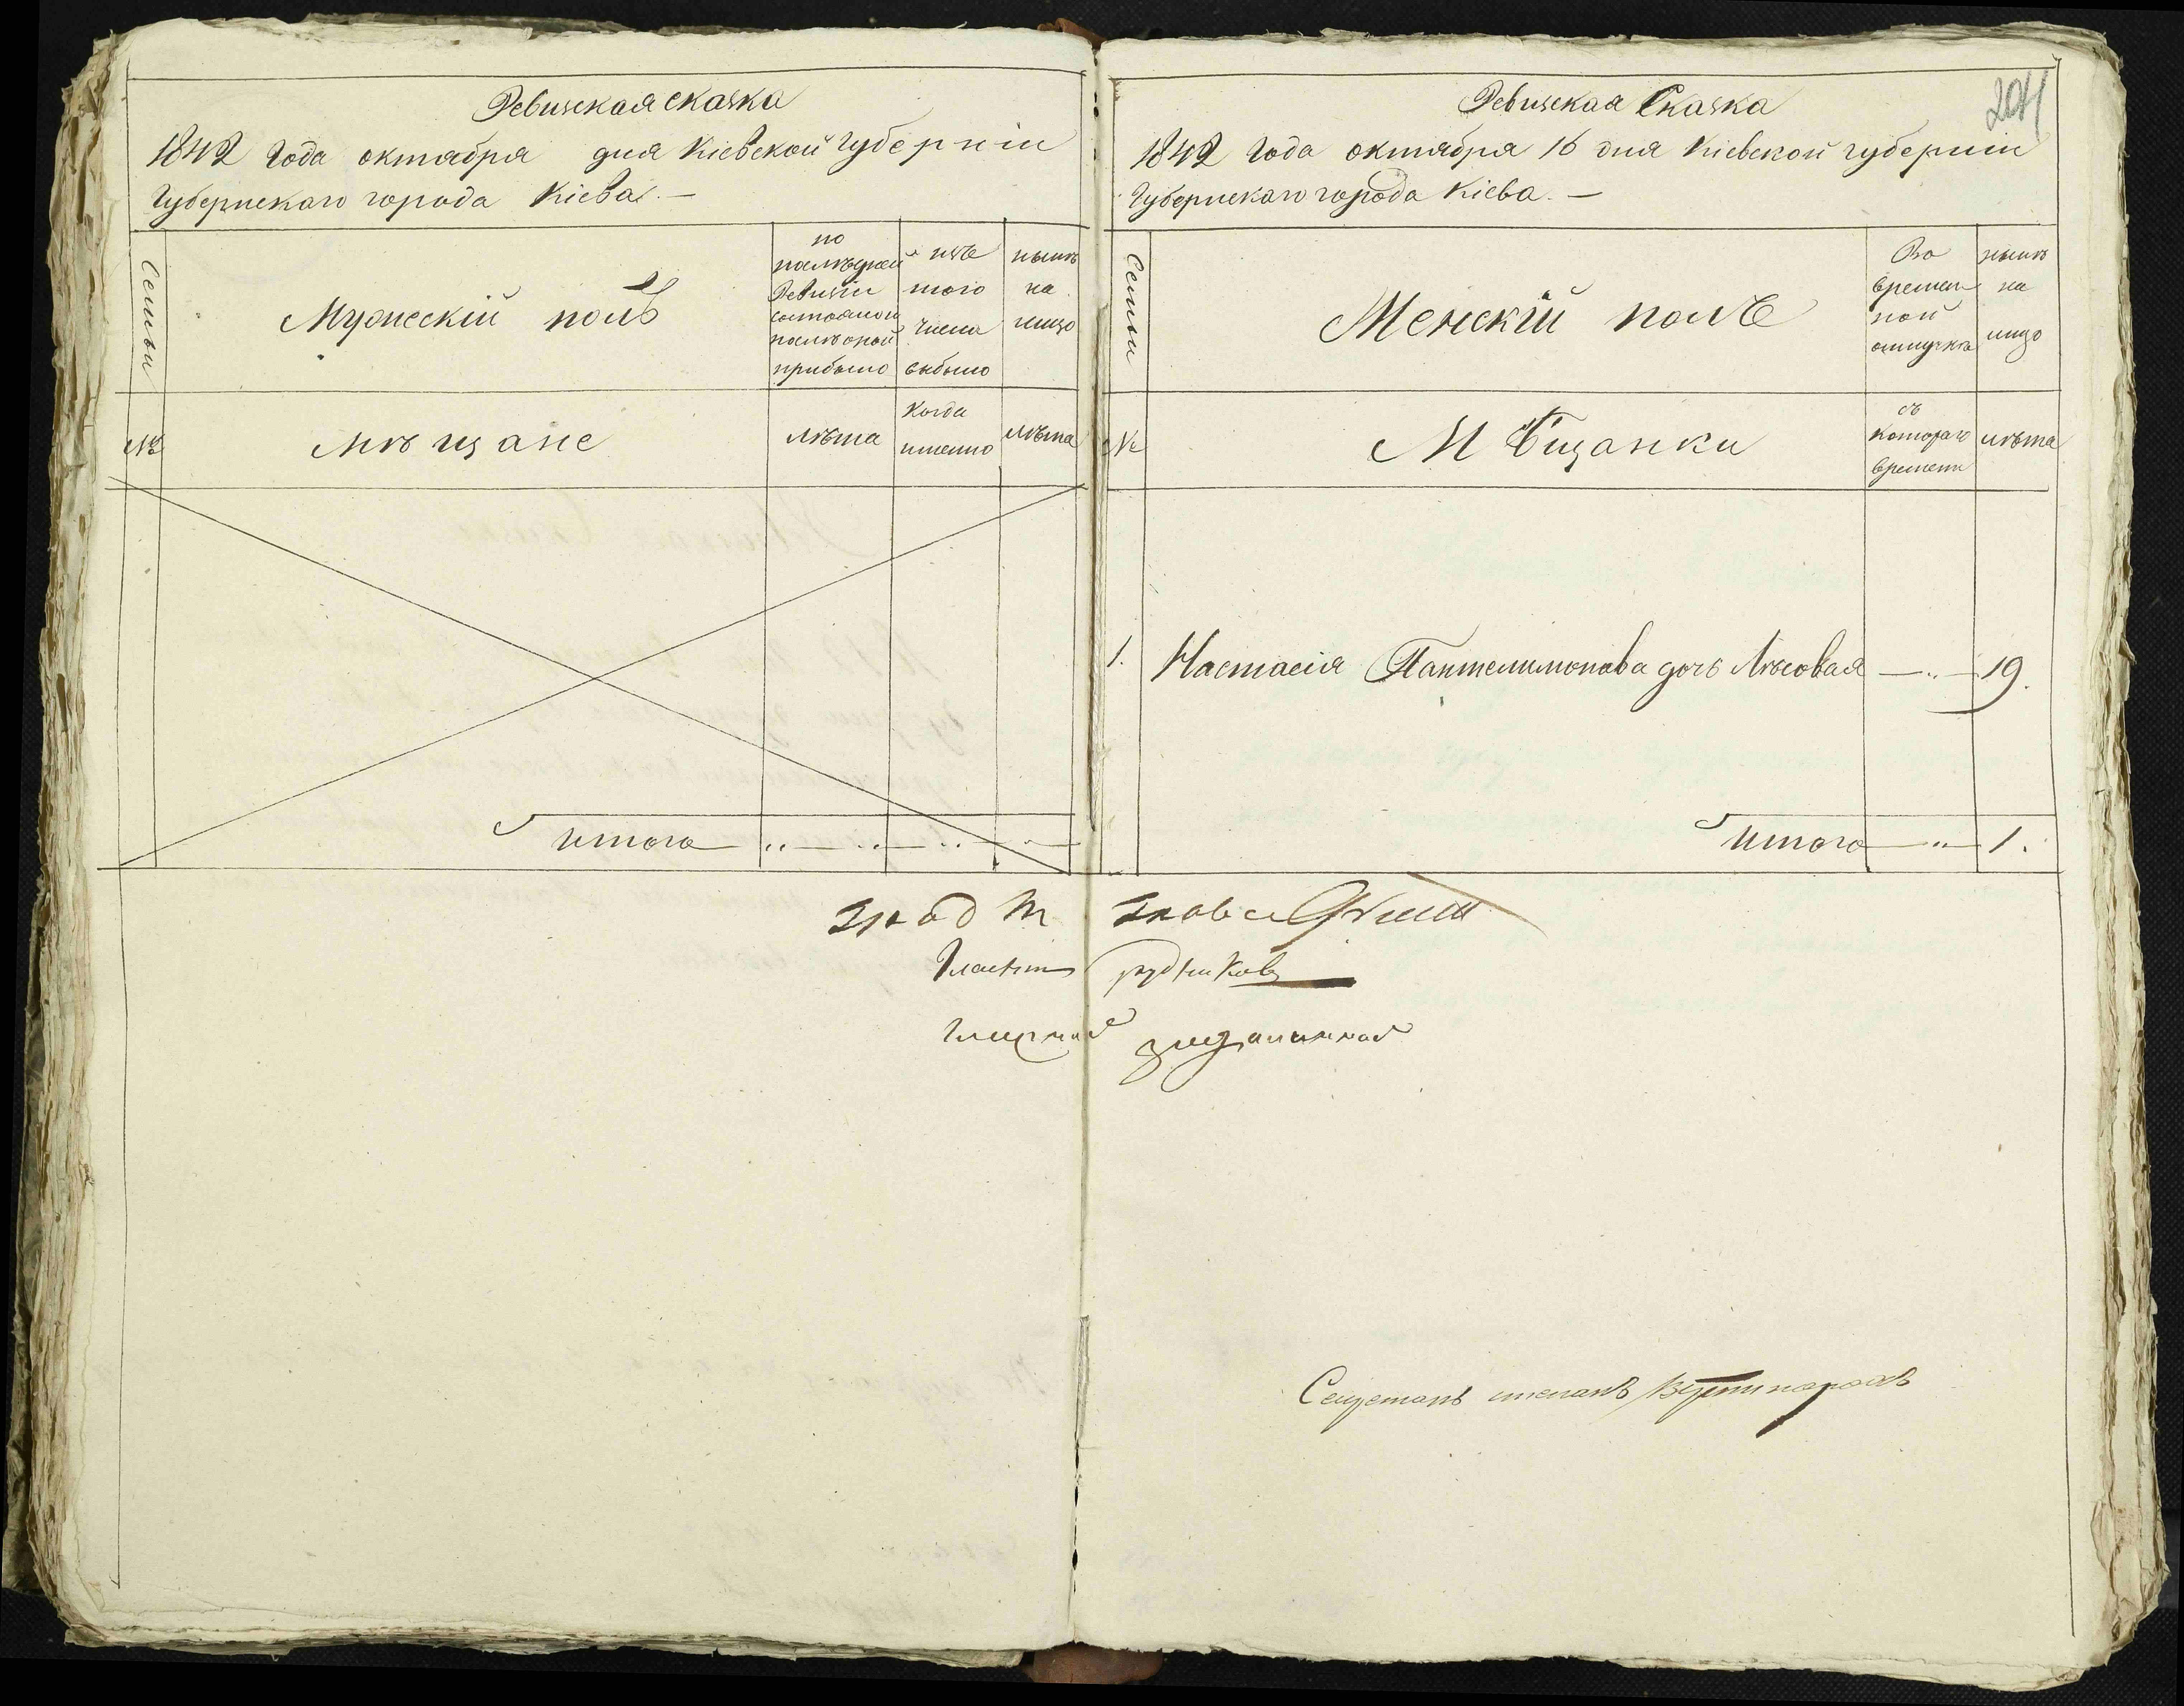 Ревизская сказка
1842 Года октября дня Кіевской Губерніи
Губернскаго города Кіева. —
Семьи
Мужескій полъ
по последней Ревизіи состояло и после оной прибыло
изъ того числа выбыло
нынѣ на лицо
№
мѣщане
лѣта
Когда именно
лѣта
Итого
204
Ревизская Сказка
1842 Года октября 16 дня Кіевской губерніи
Губернскаго города Кіева. —
Семьи
Женскій полъ
Во временной отлучкѣ
нынѣ на лицо
№
Мѣщанки
съ котораго времени
лѣта
1. Настасія Пантелимонова дочь Лѣсовая — „ — 19.
Итого — „ — 1.
Град
Гласный Рудниковъ
Гласный